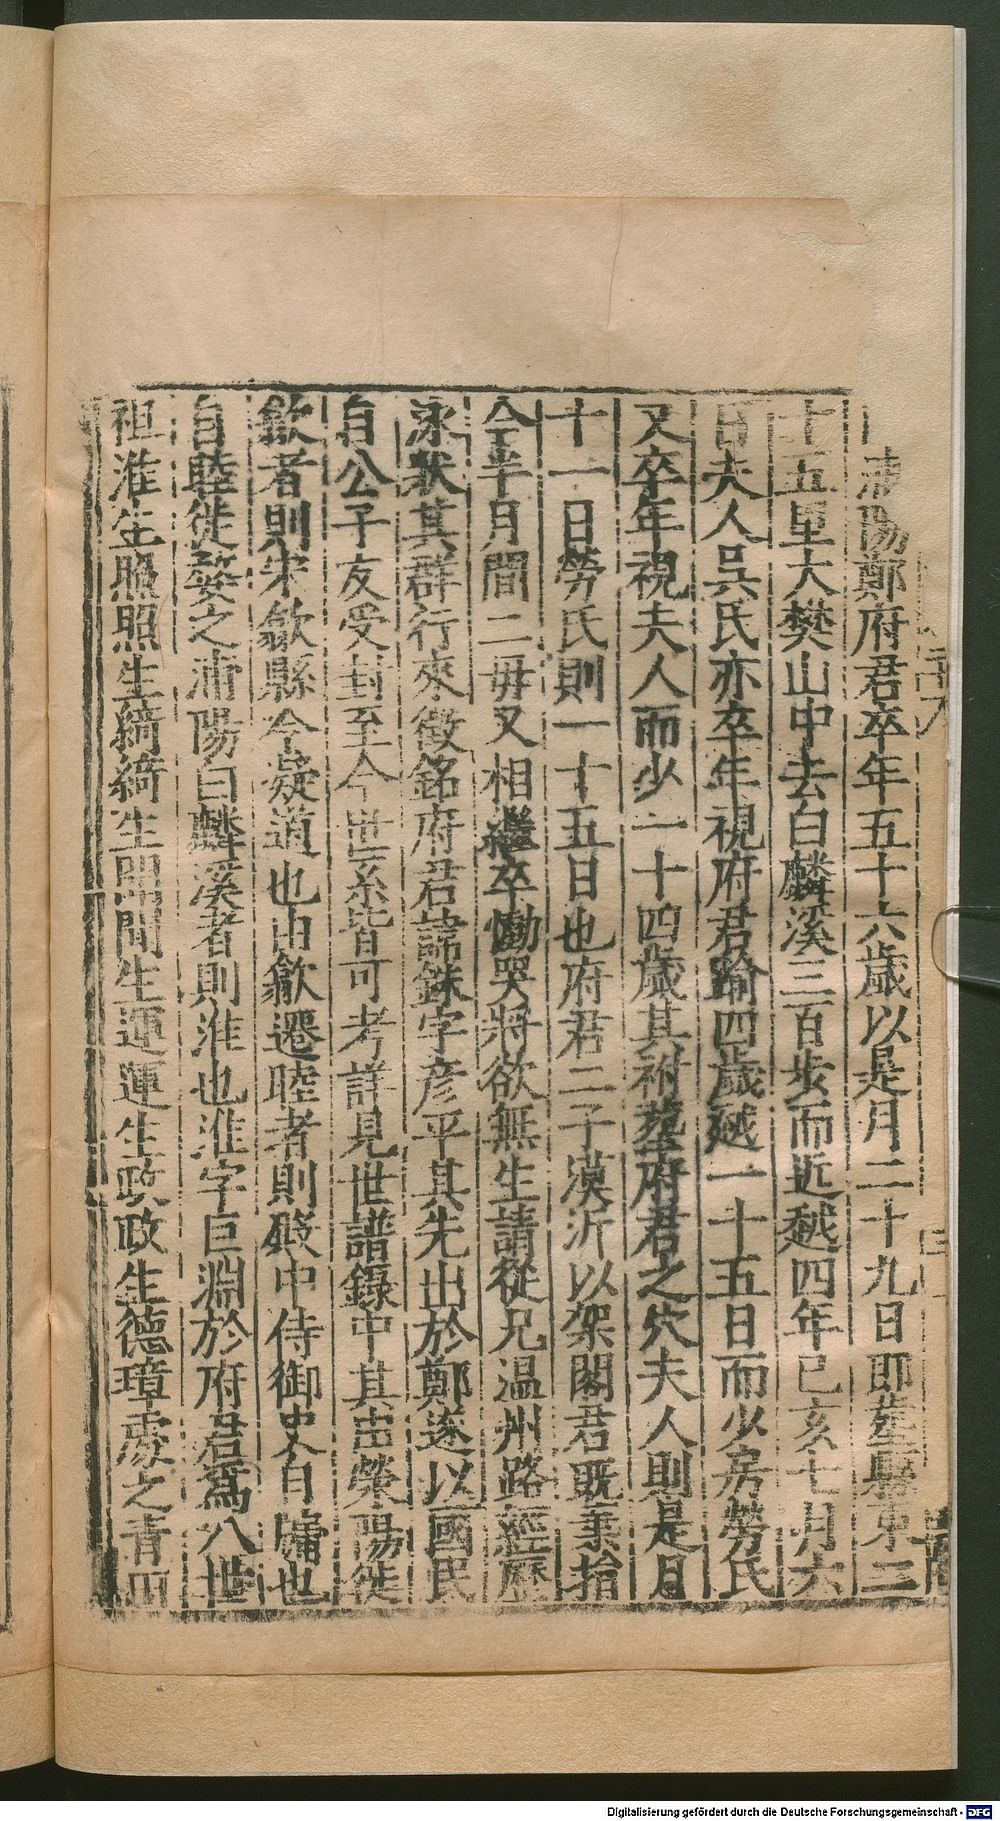 浦陽鄭府君卒年五十六歲以是月二十九日即塟縣東二
十五里大樊山中去白麟溪三百步而近越四年已亥七月六
日夫人吳氏亦卒年視府君踰四歲越一十五日而少房勞氏
又卒年視夫人而少一十四歲其祔塟府君之穴夫人則是月
十一日勞氏則一十五日也府君二子漠沂以架閣君既棄指
今半月間二毋又相繼卒慟哭將欲無生請從兄温州路經歷
泳狀其群行來徵銘府君諱銖字彦平其先出於鄭遂以國民
自公子友受封至今世系皆可考詳見世譜録中其出滎陽徙
歙者則宋歙縣令凝道也由歙遷睦者則殿中侍御史自牖也
自睦徙婺之浦陽曰麟溪者則淮也淮字巨淵於府君爲八世
祖淮生照照生綺綺生聞聞生運運生政政生德璋處之青田
Digitalisierung gefördert durch die Deutsche Forschungsgemeinschaft - DFG